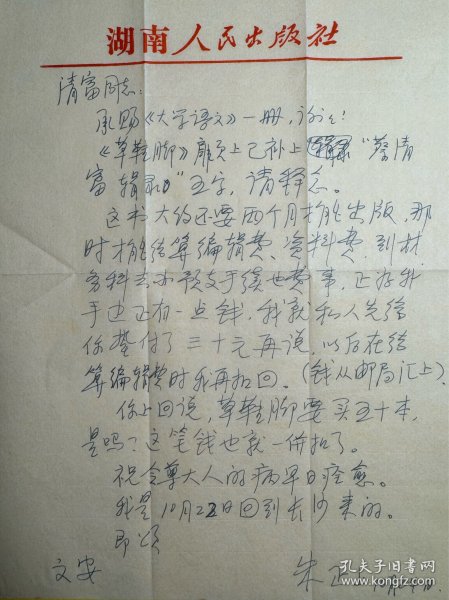 湖南人民出版社
清富同志：
承赐《大学语文》一册，谢谢！
《草鞋脚》扉页上已补上"蔡清
富辑录"五字，请释念。
这书大约还要两个月才能出版，那
时才能结算编辑费、资料费，到财
务科去办预支手续也费事，正好我
手边正有一点钱，我就私人先给
你垫付了三十元再说，以后在结
算编辑费时我再扣回。（钱从邮局汇上）
你上回说，草鞋脚要买五十本，
是吗？这笔钱也就一併扣了。
祝令尊大人的病早日痊愈。
我是10月22日回到长沙来的。
即颂
文安
朱正
孔夫子旧书网